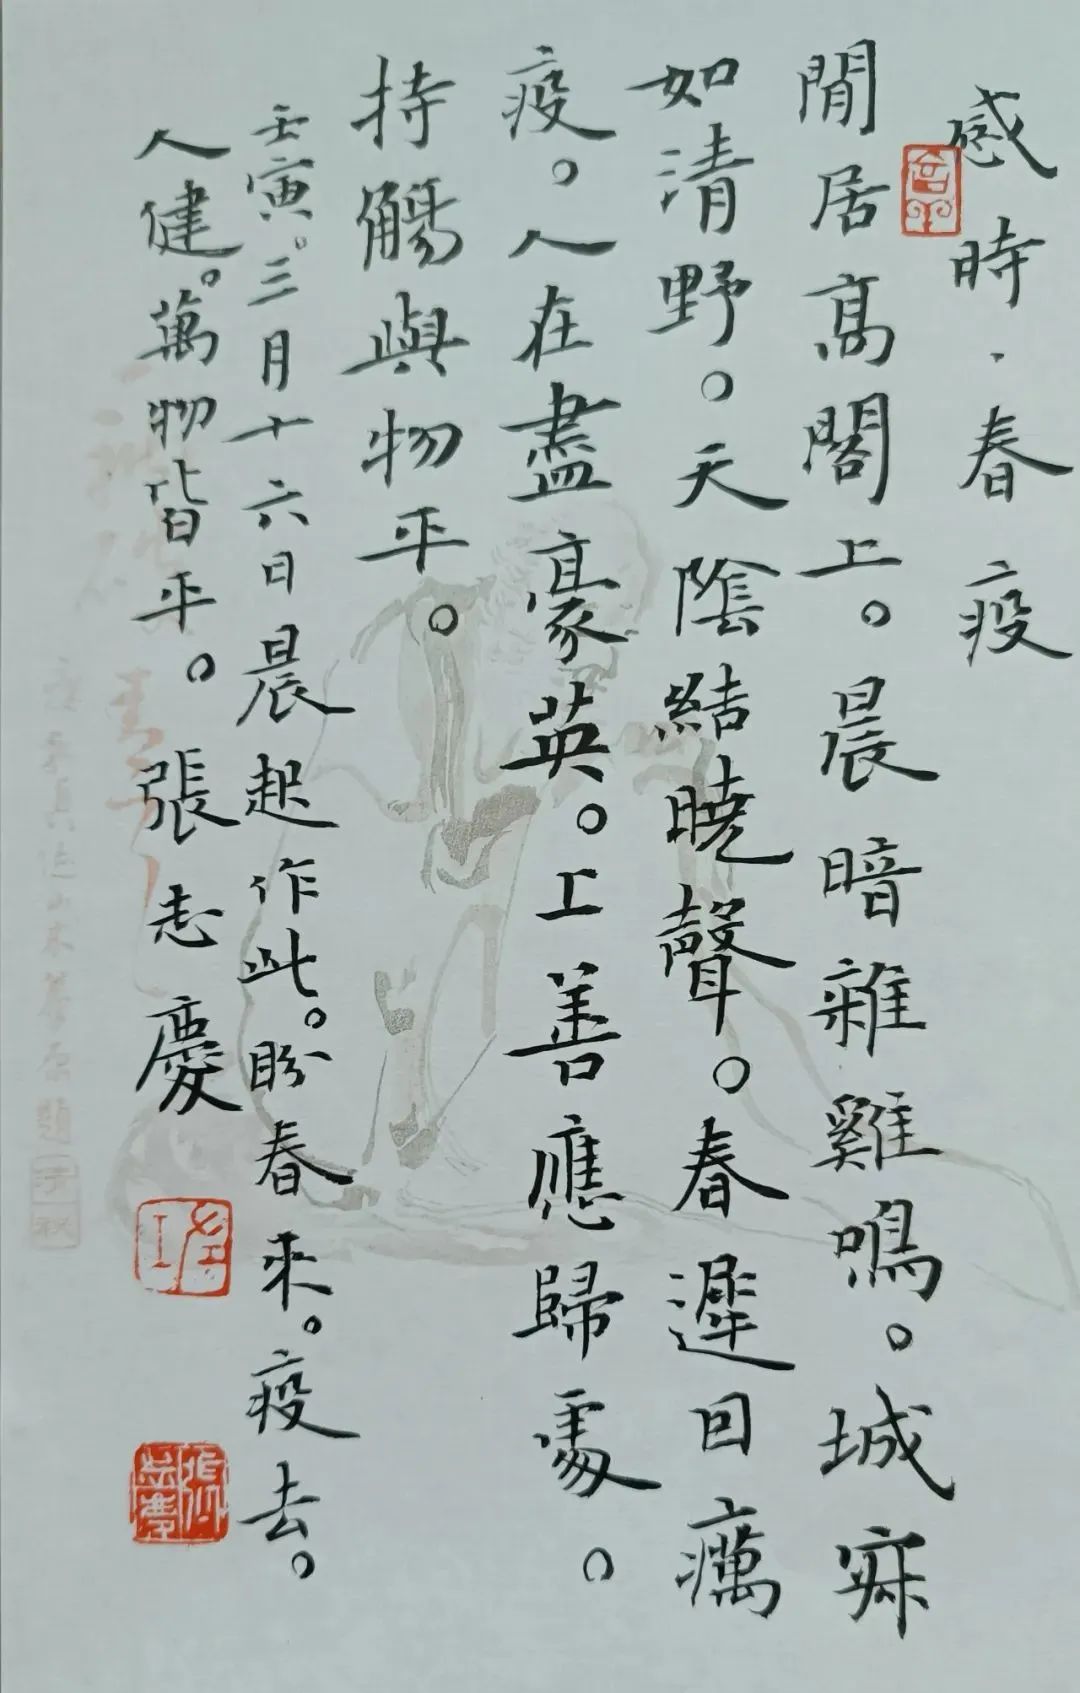 感時·春疫
閒居髙閣上。晨暗雜雞鳴。城寂
如清野。天陰結曉聲。春遲因癘
疫。人在盡豪英。上善應歸處。
持觴與物平。
壬寅。三月十六日晨起作此。盼春來。疫去。
人健。萬物皆平。張志慶
張志慶